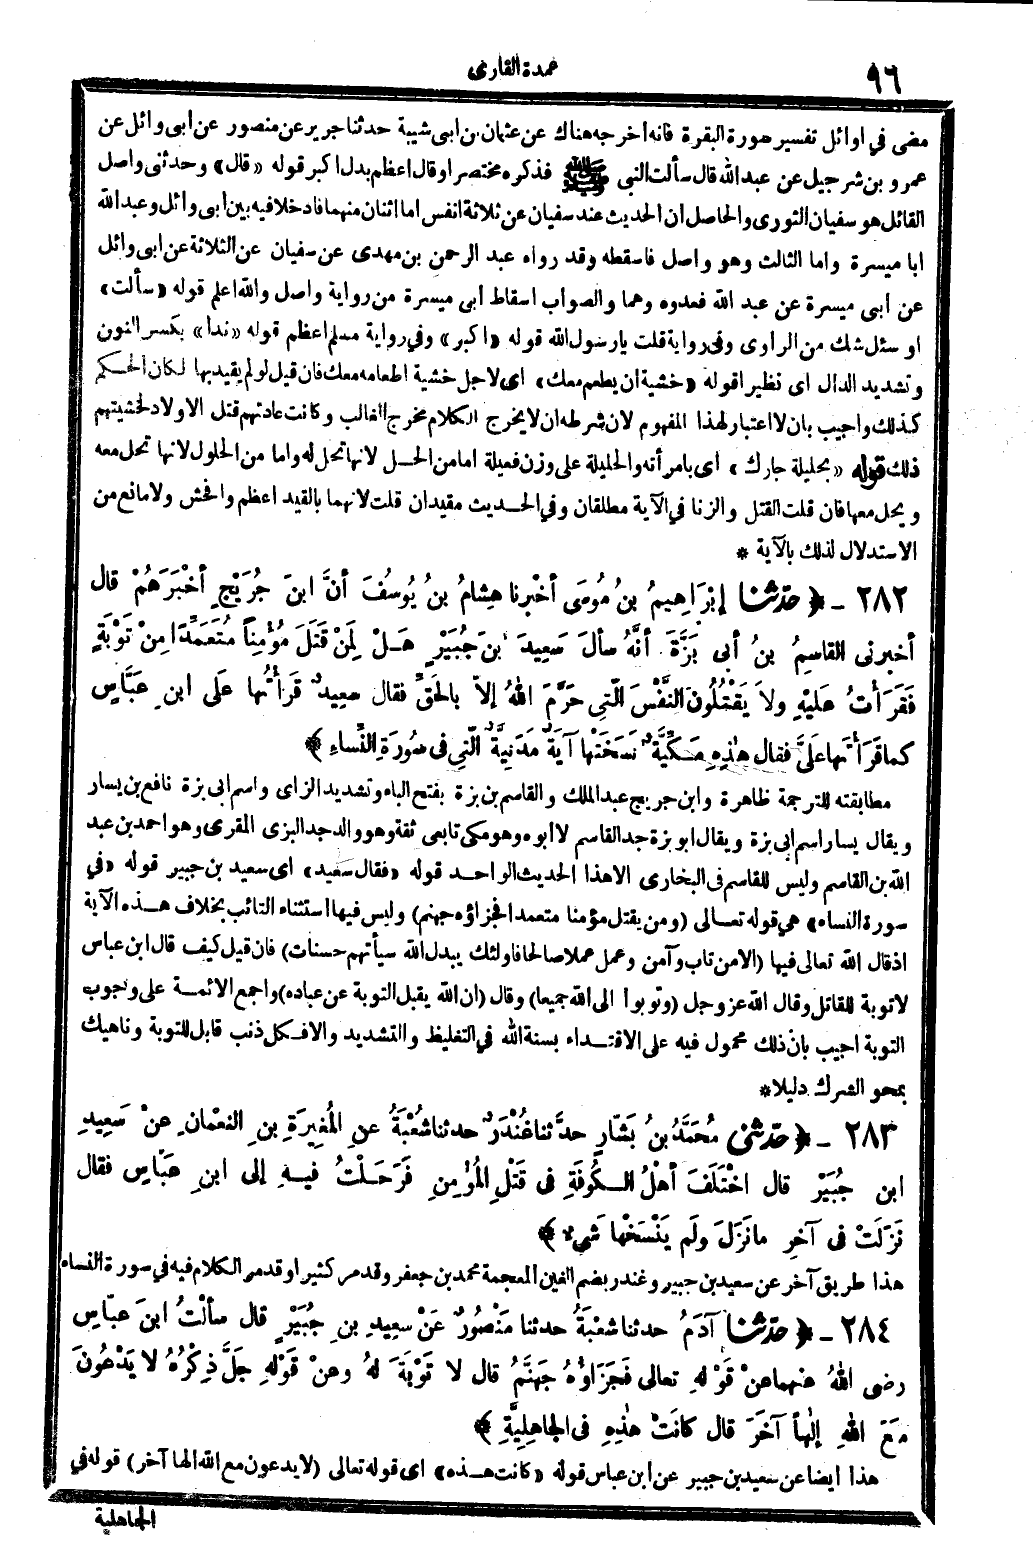 ٩٦
عمدة القارى
مضى في اوائل تفسير سورة البقرة فانه اخرجه هناك عن عثمان بن ابى شيبة حدثنا جرير عن منصور عن ابى وائل عن
عمرو بن شرجيل عن عبد الله قال سألت النبى ﷺ فذكره مختصرا وقال اعظم بدل اكبر قوله «قال» وحدثنى واصل
القائل هو سفيان الثورى والحاصل ان الحديث عند سفيان عن ثلاثة انفس اما اثنان منهما فادخلا فيه بين أبى وائل وعبد الله
ابا ميسرة واما الثالث وهو واصل فاسقطه وقد رواه عبد الرحمن بن مهدى عن سفيان عن الثلاثة عن ابى وائل
عن أبى ميسرة عن عبد الله فعدوه وهما والصواب اسقاط أبى ميسرة من رواية واصل والله اعلم قوله «سألت»
او سئل شك من الراوى وفى رواية قلت يارسول الله قوله «اكبر» وفي رواية مسلم اعظم قوله «ندا» بكسر النون
وتشديد الدال اى نظيرا قوله «خشية ان يطعم معك» اى لاجل خشية اطعامه معك فان قيل لو لم يقيد بها لكان الحكم
كذلك واجيب بان لا اعتبار لهذا المفهوم لان شرطه ان لا يخرج الكلام مخرج الغالب وكانت عادتهم قتل الاولاد لخشيتهم
ذلك قوله «بحليلة جارك» اى بامرأته والحليلة على وزن فعيلة اما من الحل لانها تحل له واما من الحلول لانها تحل معه
ويحل معها فان قلت القتل والزنا في الآية مطلقان وفي الحديث مقيدان قلت لانهما بالقيد اعظم وافحش ولا مانع من
الاستدلال لذلك بالآية *
٢٨٢ - ﴿ حدّثنا إبْرَاهِيمُ بنُ مُوسَى أخْبرنا هِشامُ بنُ يُوسُفَ أنَّ ابنَ جُرَيْجٍ أخْبَرَهُمْ قال
أخبرنى القاسِمُ بنُ أبى بَزَّةَ أنَّهُ سألَ سَعِيدَ بنَ جُبَيْرٍ هَلْ لِمَنْ قَتَلَ مُؤْمِناً مُتَعَمِّدًا مِنْ تَوْبَةٍ
فَقَرَأتُ عَلَيْهِ ولاَ يَقْتُلُونَ النَّفْسَ الَّتِى حَرَّمَ اللهُ إلاّ بالحَقِّ فقال سعِيدٌ قَرَأتُها عَلَى ابنِ عَبَّاسٍ
كما قَرَأتَها عَلَىَّ فقال هٰذِهِ مَكِّيَّةٌ نَسَخَتْها آيَةٌ مَدَنِيَّةٌ الَّتِى فى سُورَةِ النِّساءِ ﴾
مطابقته للترجمة ظاهرة وابن جريج عبد الملك والقاسم بن بزة بفتح الباء وتشديد الزاى واسم ابى بزة نافع بن يسار
ويقال يسار اسم ابى بزة ويقال ابو بزة جد القاسم لا ابوه وهو مكى تابعى ثقة وهو والد جد البزى المقرى وهو احمد بن عبد
الله بن القاسم وليس للقاسم فى البخارى الا هذا الحديث الواحد قوله «فقال سعيد» اى سعيد بن جبير قوله «في
سورة النساء» هى قوله تعالى (ومن يقتل مؤمنا متعمدا فجزاؤه جهنم) وليس فيها استثناء التائب بخلاف هذه الآية
اذ قال الله تعالى فيها (الا من تاب وآمن وعمل عملا صالحا فاولئك يبدل الله سيأتهم حسنات) فان قيل كيف قال ابن عباس
لا توبة للقاتل وقال الله عز وجل (وتوبوا الى الله جميعا) وقال (ان الله يقبل التوبة عن عباده) واجمع الائمة على وجوب
التوبة اجيب بان ذلك محمول فيه على الاقتداء بسنة الله في التغليظ والتشديد والا فكل ذنب قابل للتوبة وناهيك
بمحو الشرك دليلا*
٢٨٣ - ﴿ حدّثنى مُحَمَّدُ بنُ بَشَّارٍ حدَّثنا غُنْدَرٌ حدثنا شُعْبَةُ عنِ المُغِيرَةِ بنِ النعْمانِ عنْ سَعِيدِ
ابنِ جُبَيْرٍ قال اخْتَلَفَ أهْلُ الكُوفَةِ فى قَتْلِ المُؤْمِنِ فَرَحَلْتُ فيهِ إلى ابنِ عَبّاسٍ فقال
نَزَلَتْ فى آخِرِ مانَزَلَ ولَم يَنْسَخْها شَىْءٌ ﴾
هذا طريق آخر عن سعيد بن جبير وغندر بضم الغين المعجمة محمد بن جعفر وقد مر كثيرا وقد مر الكلام فيه في سورة النساء
٢٨٤ - ﴿ حدّثنا آدَمُ حدثنا شعْبَةُ حدثنا مَنْصُورٌ عَنْ سعِيدِ بنِ جُبَيْرٍ قال سألْتُ ابنَ عبّاسٍ
رضى اللهُ عنهما عنْ قَوْلِهِ تعالى فَجَزَاؤُهُ جَهَنَّمُ قال لا تَوْبَةَ لهُ وعنْ قَوْلِهِ جلَّ ذِكْرُهُ لا يَدْعُونَ
مَعَ اللهِ إلٰهاً آخَرَ قال كانَتْ هٰذِهِ فى الجاهِلِيَّةِ ﴾
هذا ايضا عن سعيد بن جبير عن ابن عباس قوله «كانت هذه» اى قوله تعالى (لا يدعون مع الله الها آخر) قوله في
الجاهلية